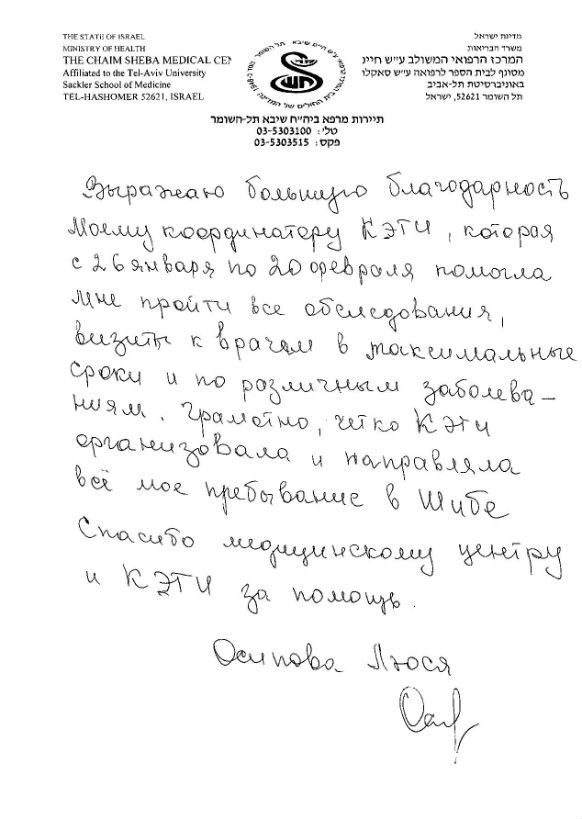 THE STATE OF ISRAEL
MINISTRY OF HEALTH
THE CHAIM SHEBA MEDICAL CEN
Affiliated to the Tel-Aviv University
Sackler School of Medicine
TEL-HASHOMER 52621, ISRAEL
מדינת ישראל
משרד הבריאות
המרכז הרפואי המשולב ע״ש חיים
מסונף לבית הספר לרפואה ע״ש סאקלר
באוניברסיטת תל-אביב
תל השומר 52621, ישראל
תיירות מרפא ביה״ח שיבא תל-השומר
טל׳: 03-5303100
פקס: 03-5303515
Выражаю большую благодарность
Моему координатору КЭТИ, которая
с 26 января по 20 февраля помогла
мне пройти все обследования,
визиты к врачам в максимальные
сроки и по различным заболева-
ниям. Грамотно, четко КЭТИ
организовала и направляла
всё мое пребывание в Шибе
Спасибо медицинскому центру
и КЭТИ за помощь.
Осипова Люся